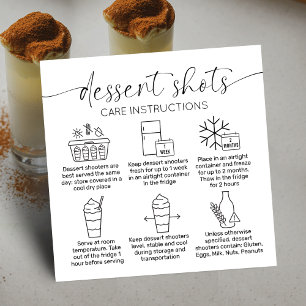 dessert shots
CARE INSTRUCTIONS
1 WEEK
2 MONTHS
Dessert shooters are
best served the same
day: store covered in a
cool dry place
Keep dessert shooters
fresh for up to 1 week
in an airtight container
in the fridge
Place in an airtight
container and freeze
for up to 2 months.
Thaw in the fridge
for 2 hours
Serve at room
temperature. Take
out of the fridge 1
hour before serving
Keep dessert shooters
level, stable and cool
during storage and
transportation
Unless otherwise
specified, dessert
shooters contain: Gluten,
Eggs, Milk, Nuts, Peanuts